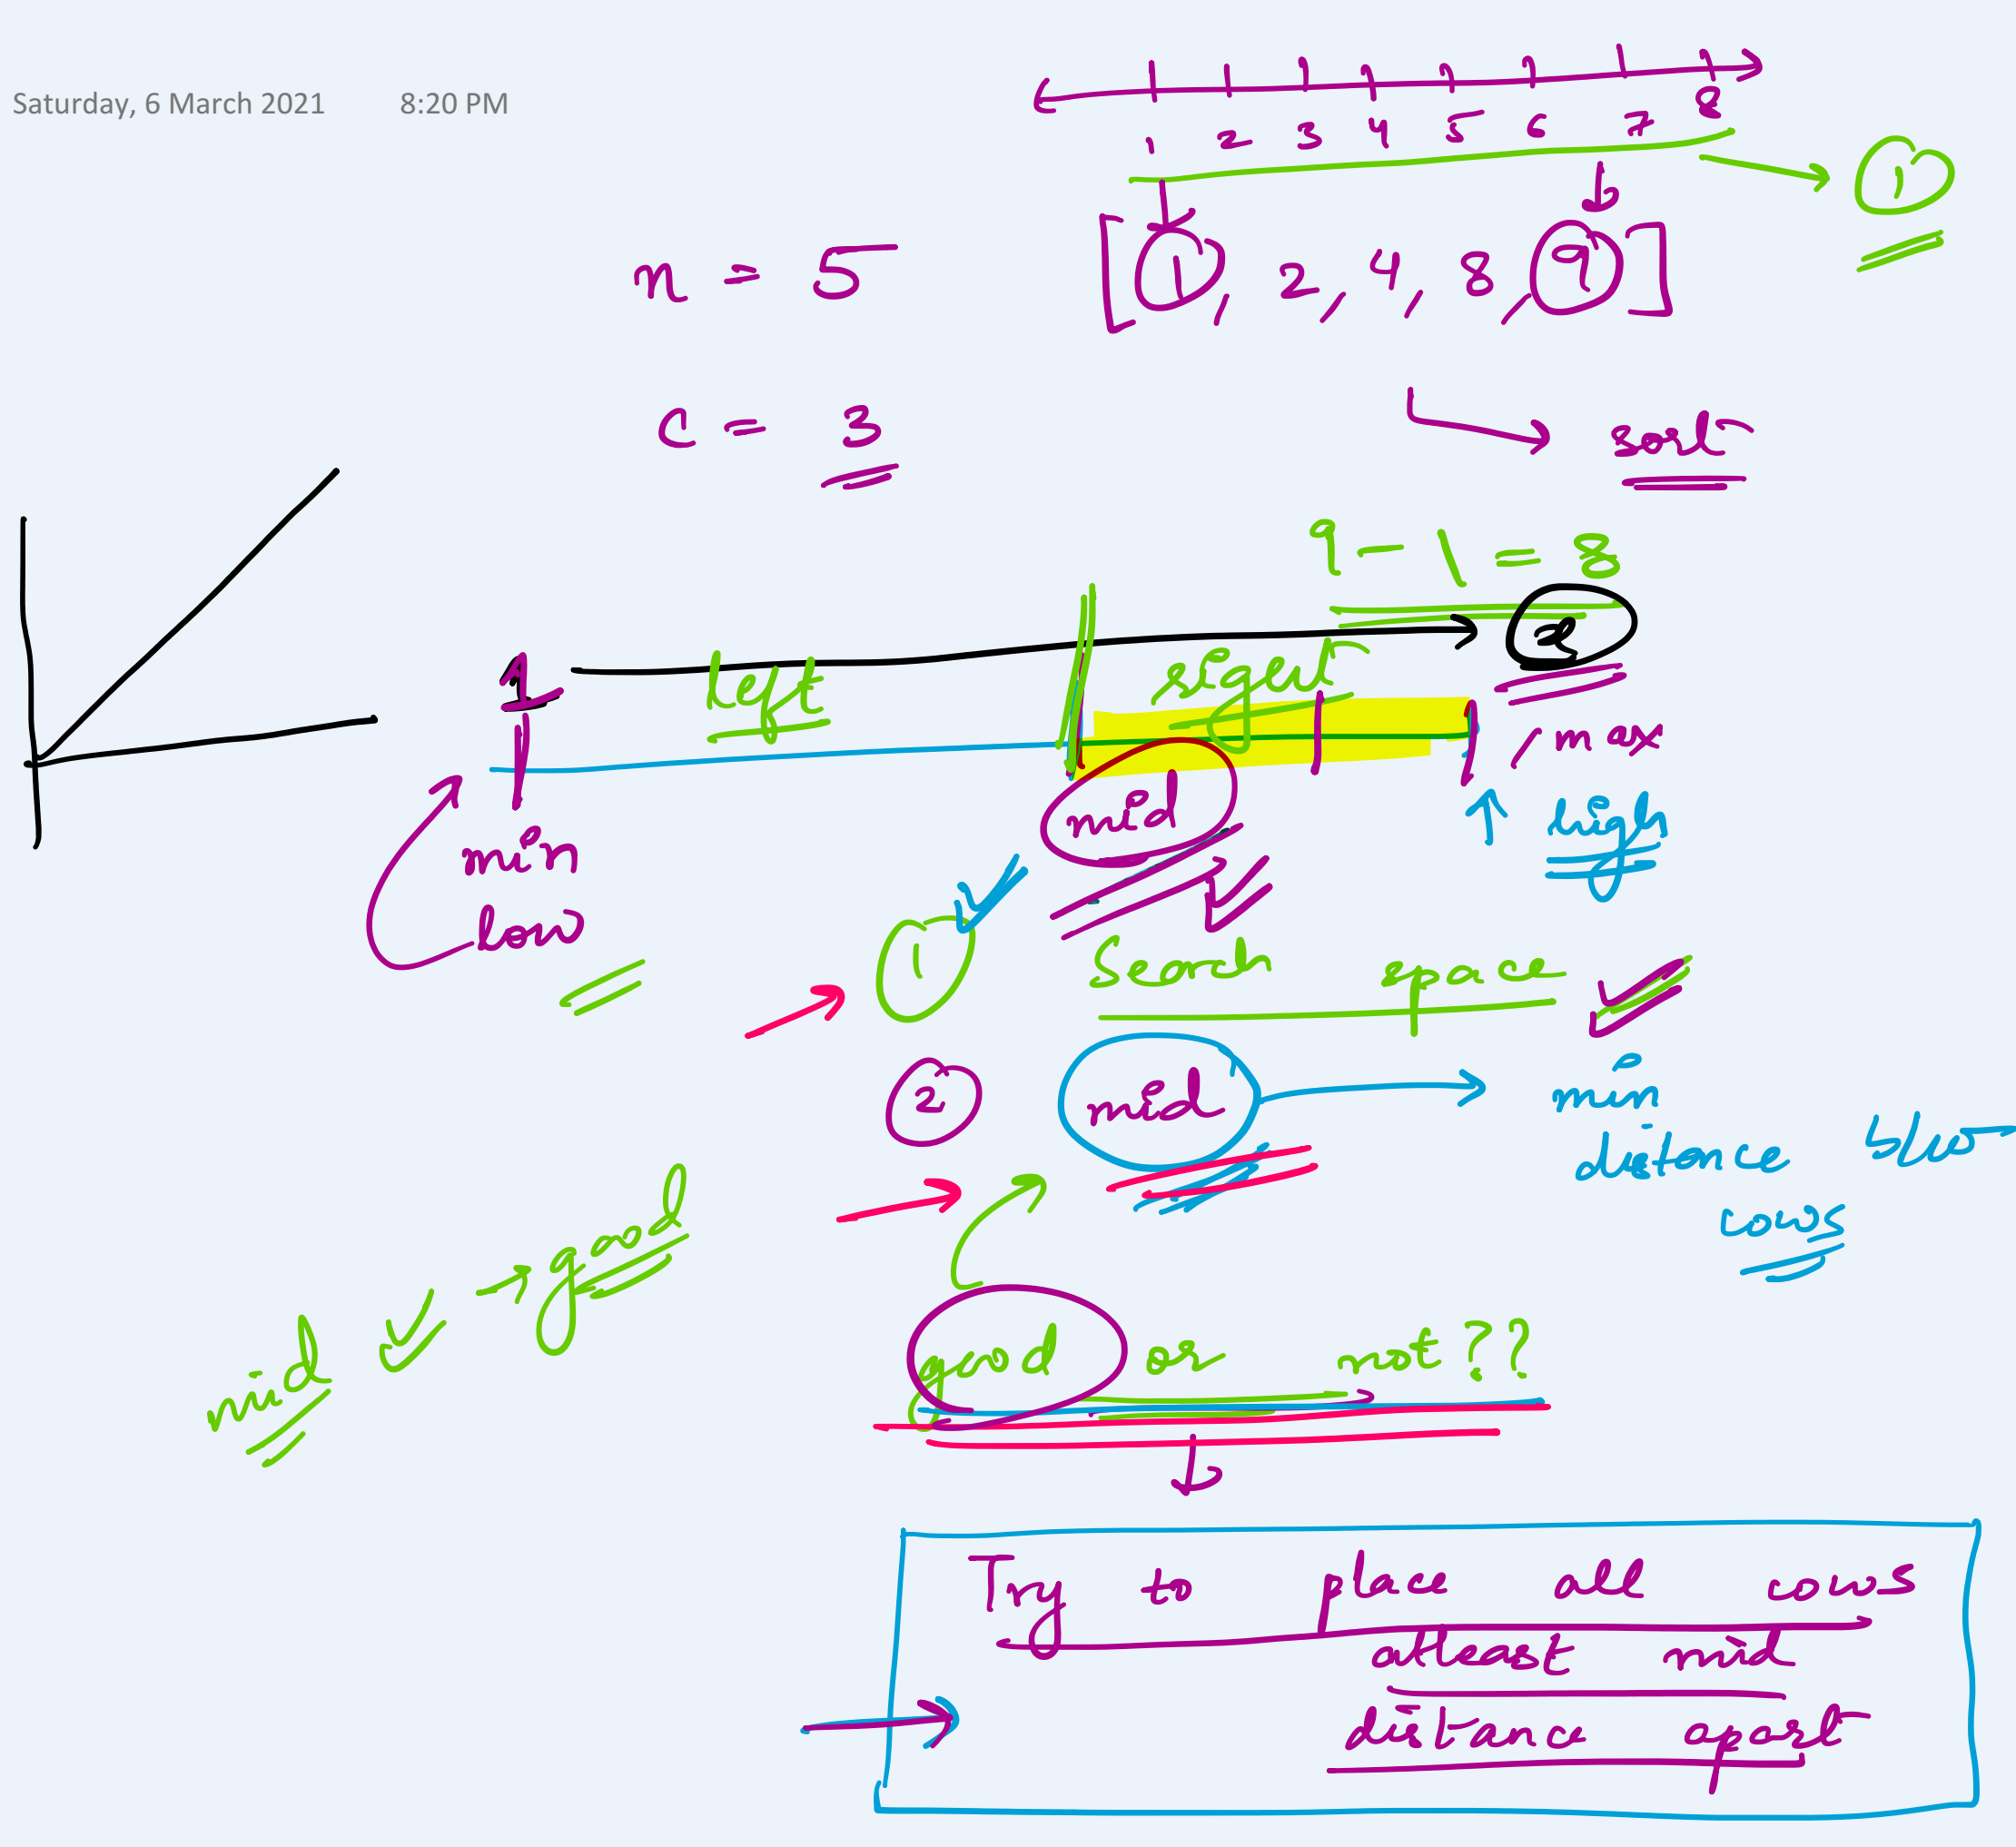 Saturday, 6 March 2021 8:20 PM
1 2 3 4 5 6 7 8
1
n = 5 [1, 2, 4, 8, 9]
c = 3 sort
9 - 1 = 8
1 left right
max
mid high
min
low
1 Search space
2 mid min
distance b/w
cows
mid good
good or not??
Try to place all cows
atleast mid
distance apart